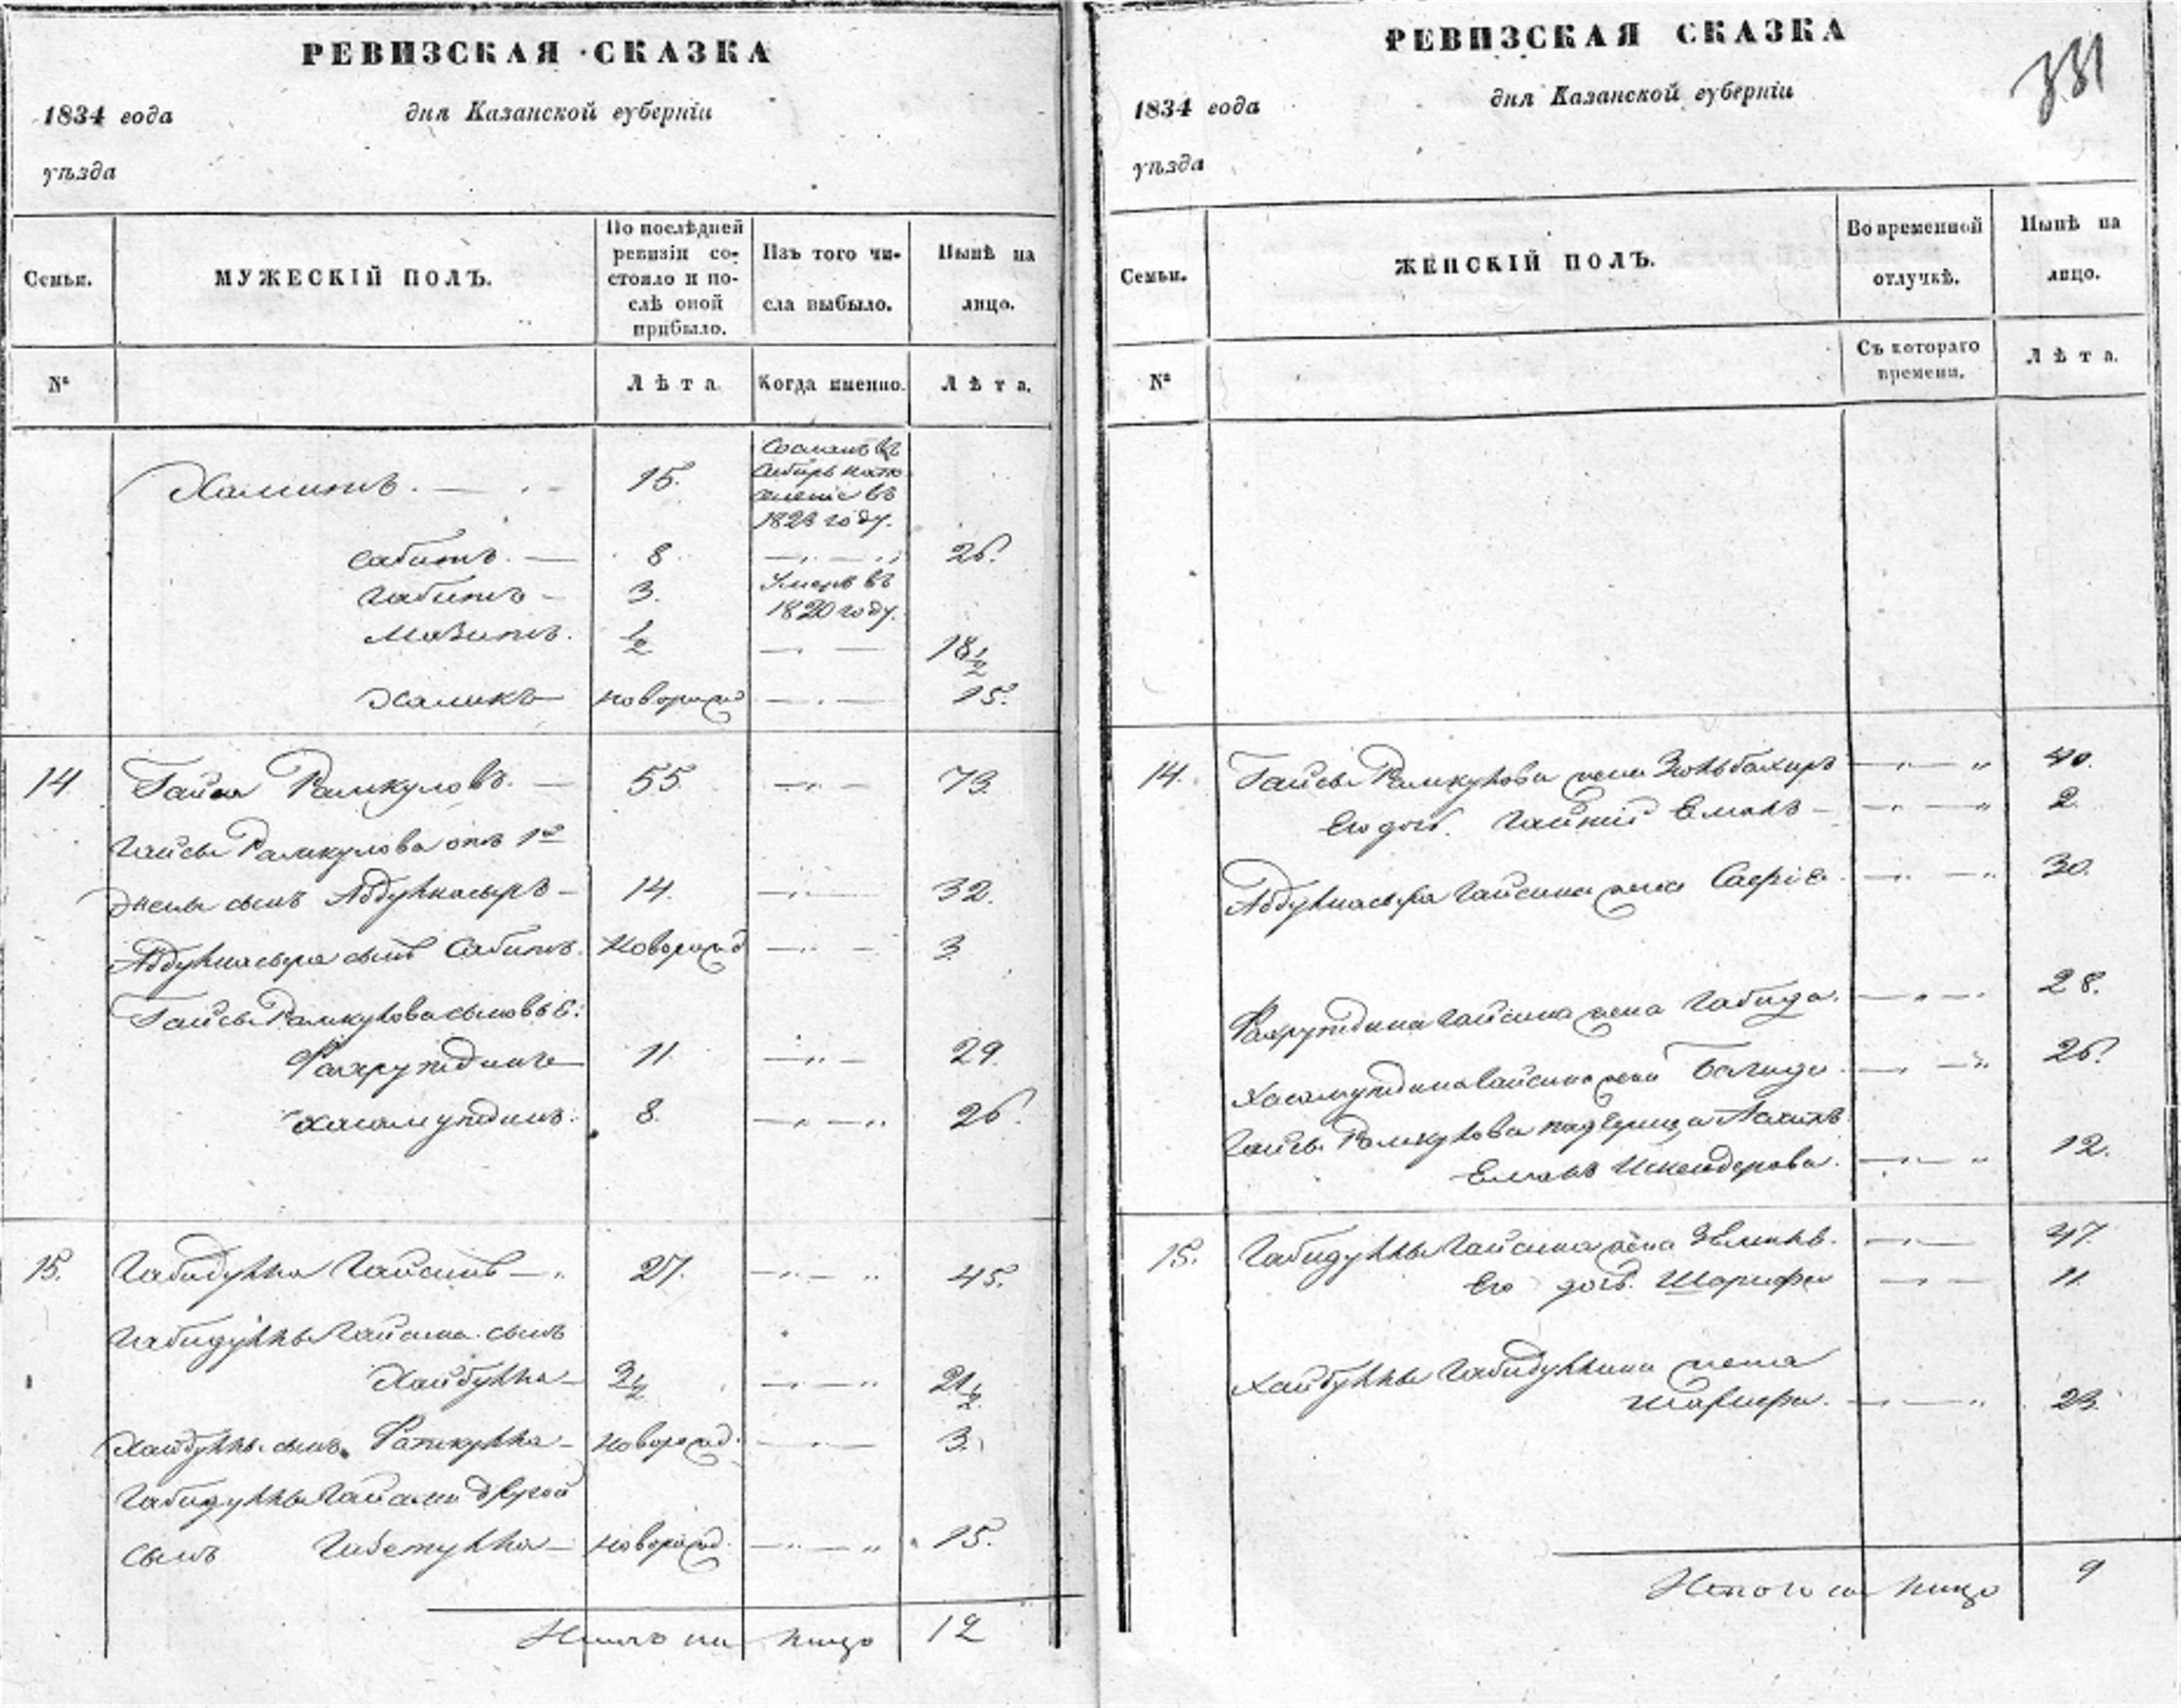 РЕВИЗСКАЯ СКАЗКА
1834 года дня Казанской губерніи
уѣзда
Семьи. МУЖЕСКІЙ ПОЛЪ. По послѣдней ревизіи состояло и послѣ оной прибыло. Изъ того числа выбыло. Нынѣ на лицо.
№ Лѣта. Когда именно. Лѣта.
Хамитъ. 15. Сосланъ въ
Сибирь на
въ
1823 году.
Сабитъ. 8. 26.
Габитъ 3. Умеръ въ
1820 году.
Мазитъ. ½ 18½
Халикъ новорожд 15.
14 Гайса Рамкуловъ. 55 73.
Гайсы Рамкулова отъ 1й
жены сынъ Абдулнасыръ 14. 32.
Абдулнасыра сынъ Сабитъ. новорожд 3.
Гайсы Рамкулова сыновья:
Фахрутдинъ 11 29.
Хасамутдинъ. 8. 26.
15. Габидулла Гайсинъ 27. 45.
Габидуллы Гайсина сынъ
Хайбулла 3½ 21½
Хайбуллы сынъ Фаткулла новорожд. 3.
Габидуллы Гайсина другой
сынъ новорожд. 15.
Итого на лицо 12
РЕВИЗСКАЯ СКАЗКА
331
1834 года дня Казанской губерніи
уѣзда
Семьи. ЖЕНСКІЙ ПОЛЪ. Во временной отлучкѣ. Нынѣ на лицо.
№ Съ котораго времени. Лѣта.
14. Гайсы Рамкулова жена Зюльбахаръ 40.
Его дочь 2.
Абдулнасыра Гайсина жена 30.
Фахрутдина Гайсина жена Габида. 28.
Хасамутдина Гайсина жена 26.
Гайсы Рамкулова падчерица
Искендерова. 12.
15. Габидуллы Гайсина жена 47.
Его дочь Шарифа 11.
Хайбуллы Габидуллина жена
Шарифа. 23.
Итого на лицо 9